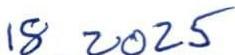 18 2025